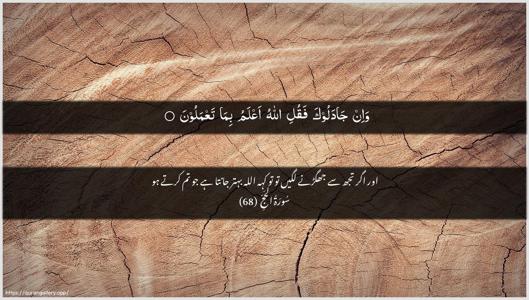 وَاِنْ جَادَلُوْكَ فَقُلِ اللّٰهُ اَعْلَمُ بِمَا تَعْمَلُوْنَ ○
اور اگر تجھ سے جھگڑنے لگیں تو تو کہہ اللہ بہتر جانتا ہے جو تم کرتے ہو
سُوْرَۃُ الْحَجِّ (68)
https://qurangallery.app/